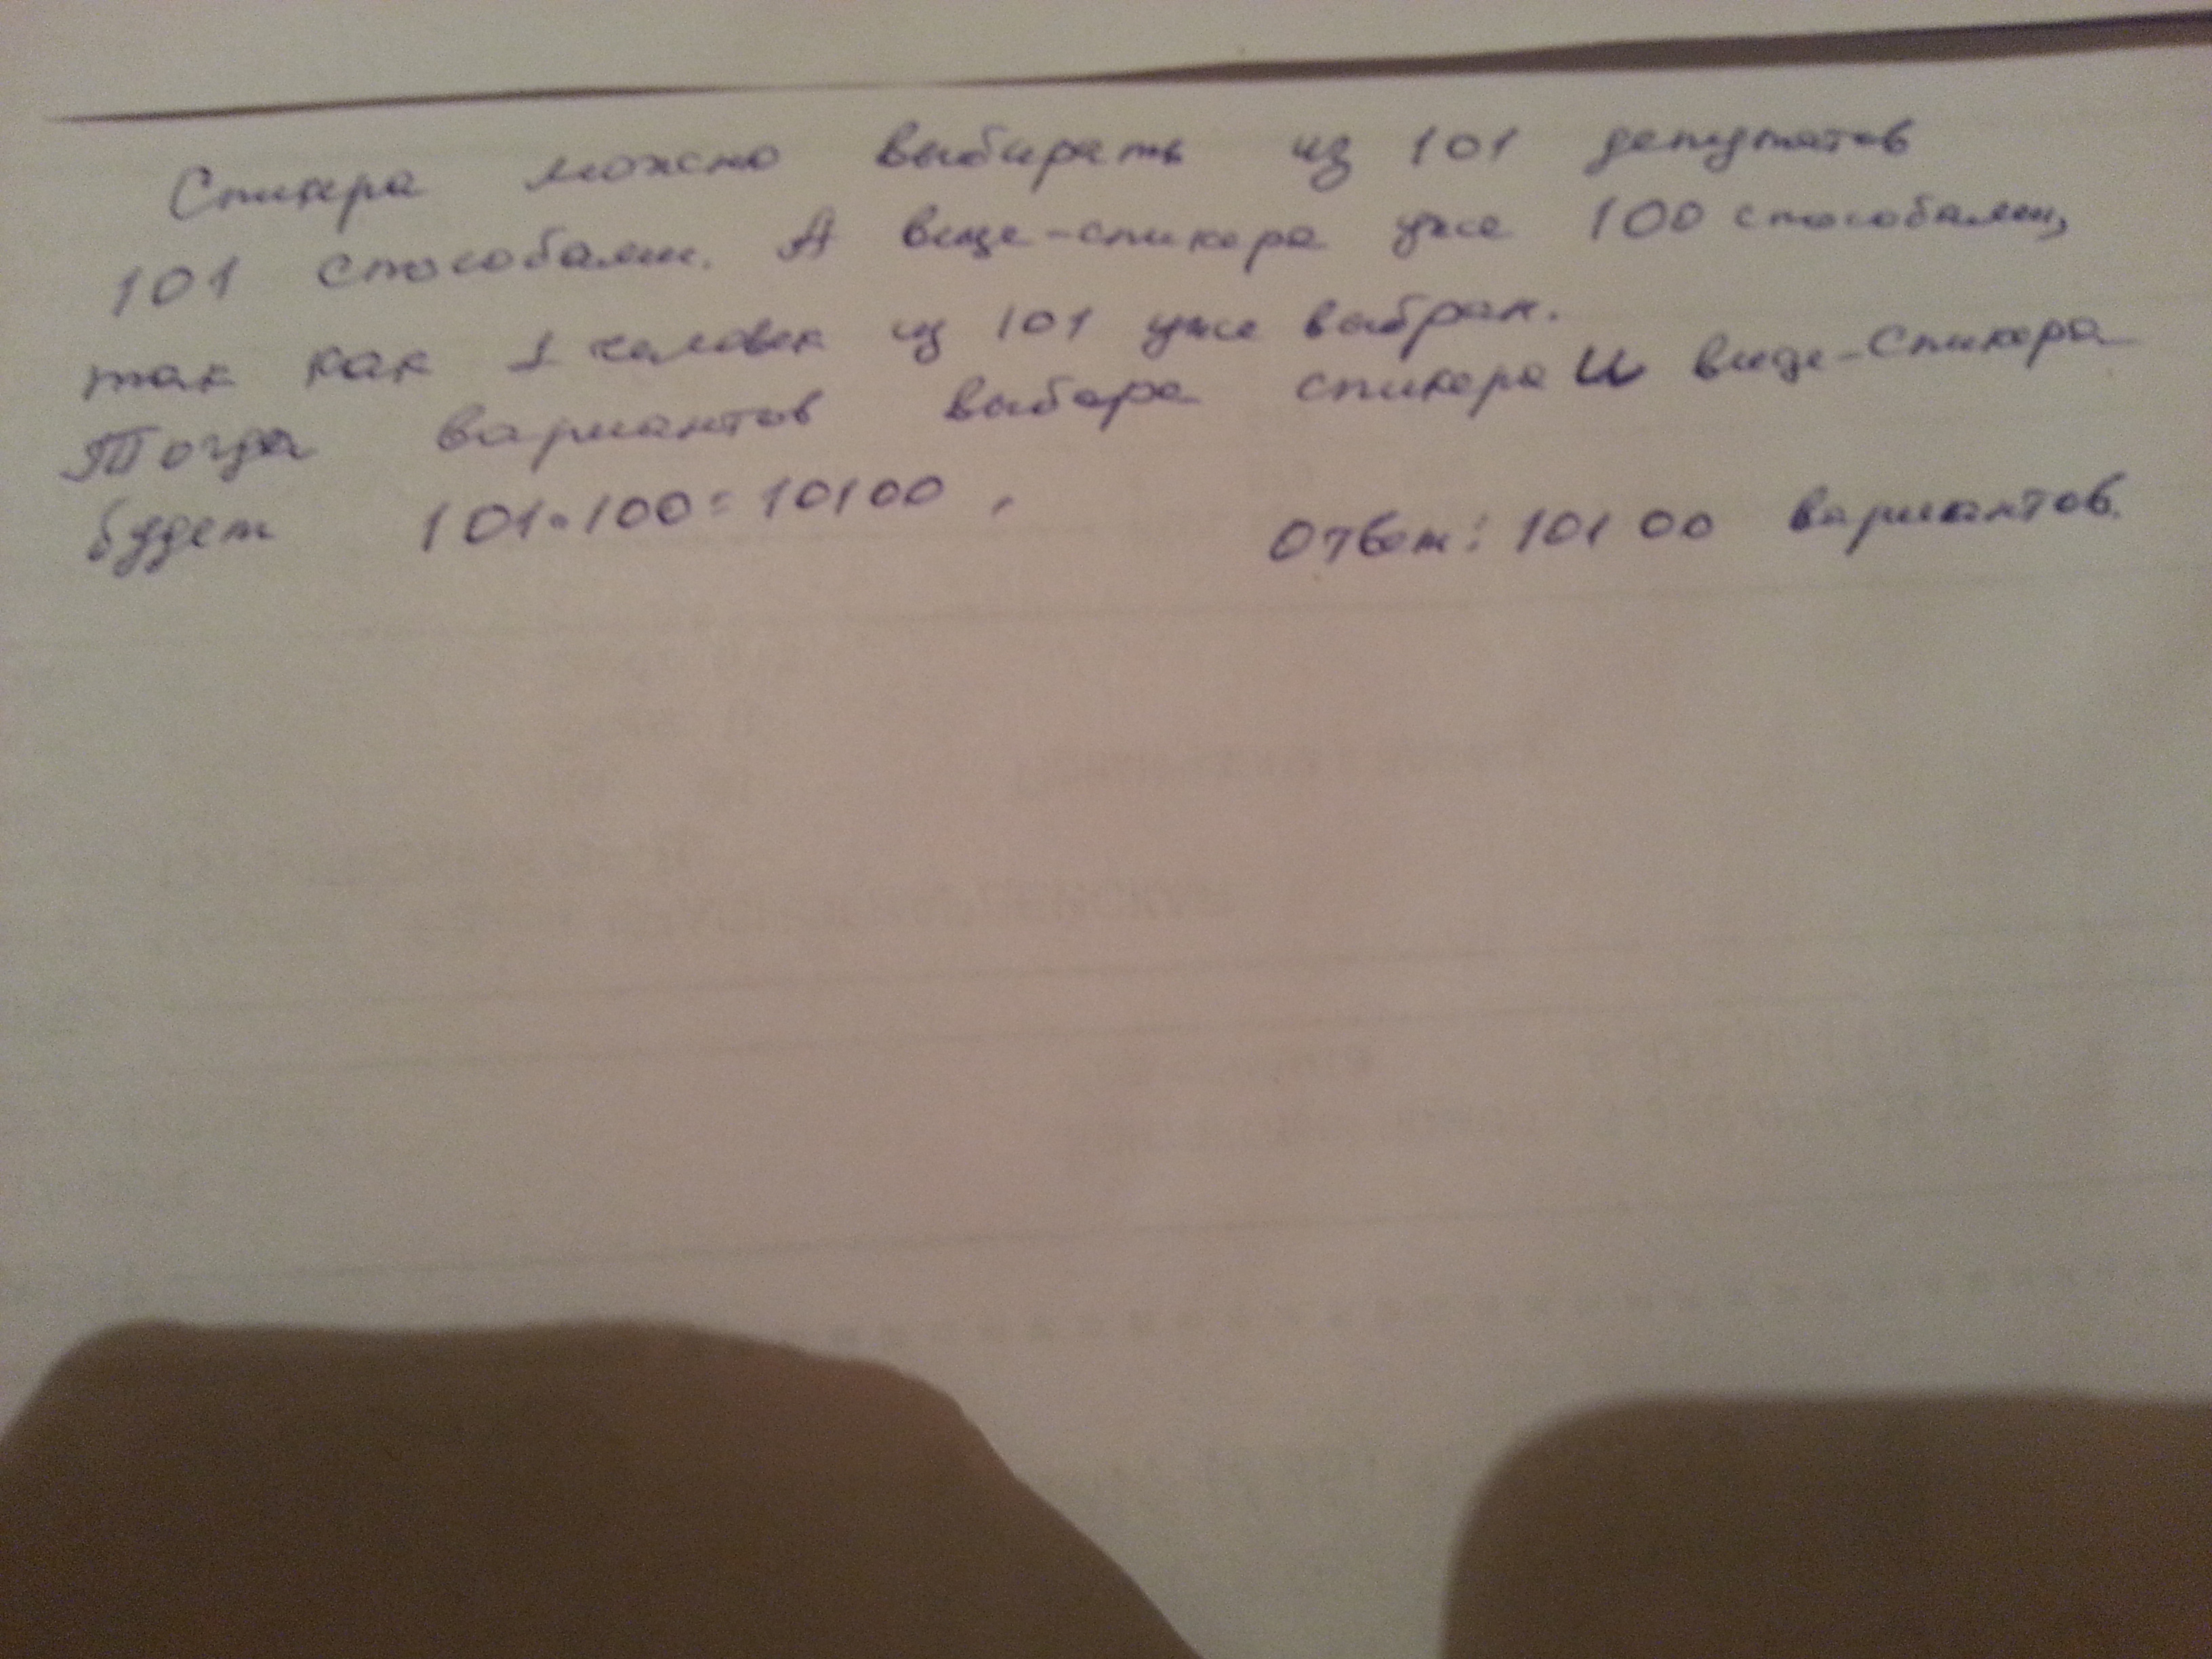 Спикера можно выбирать из 101 депутатов
101 способами. А вице-спикера уже 100 способами,
так как 1 человек из 101 уже выбран.
Тогда вариантов выбора спикера и вице-спикера
будет 101·100=10100.
Ответ: 10100 вариантов.